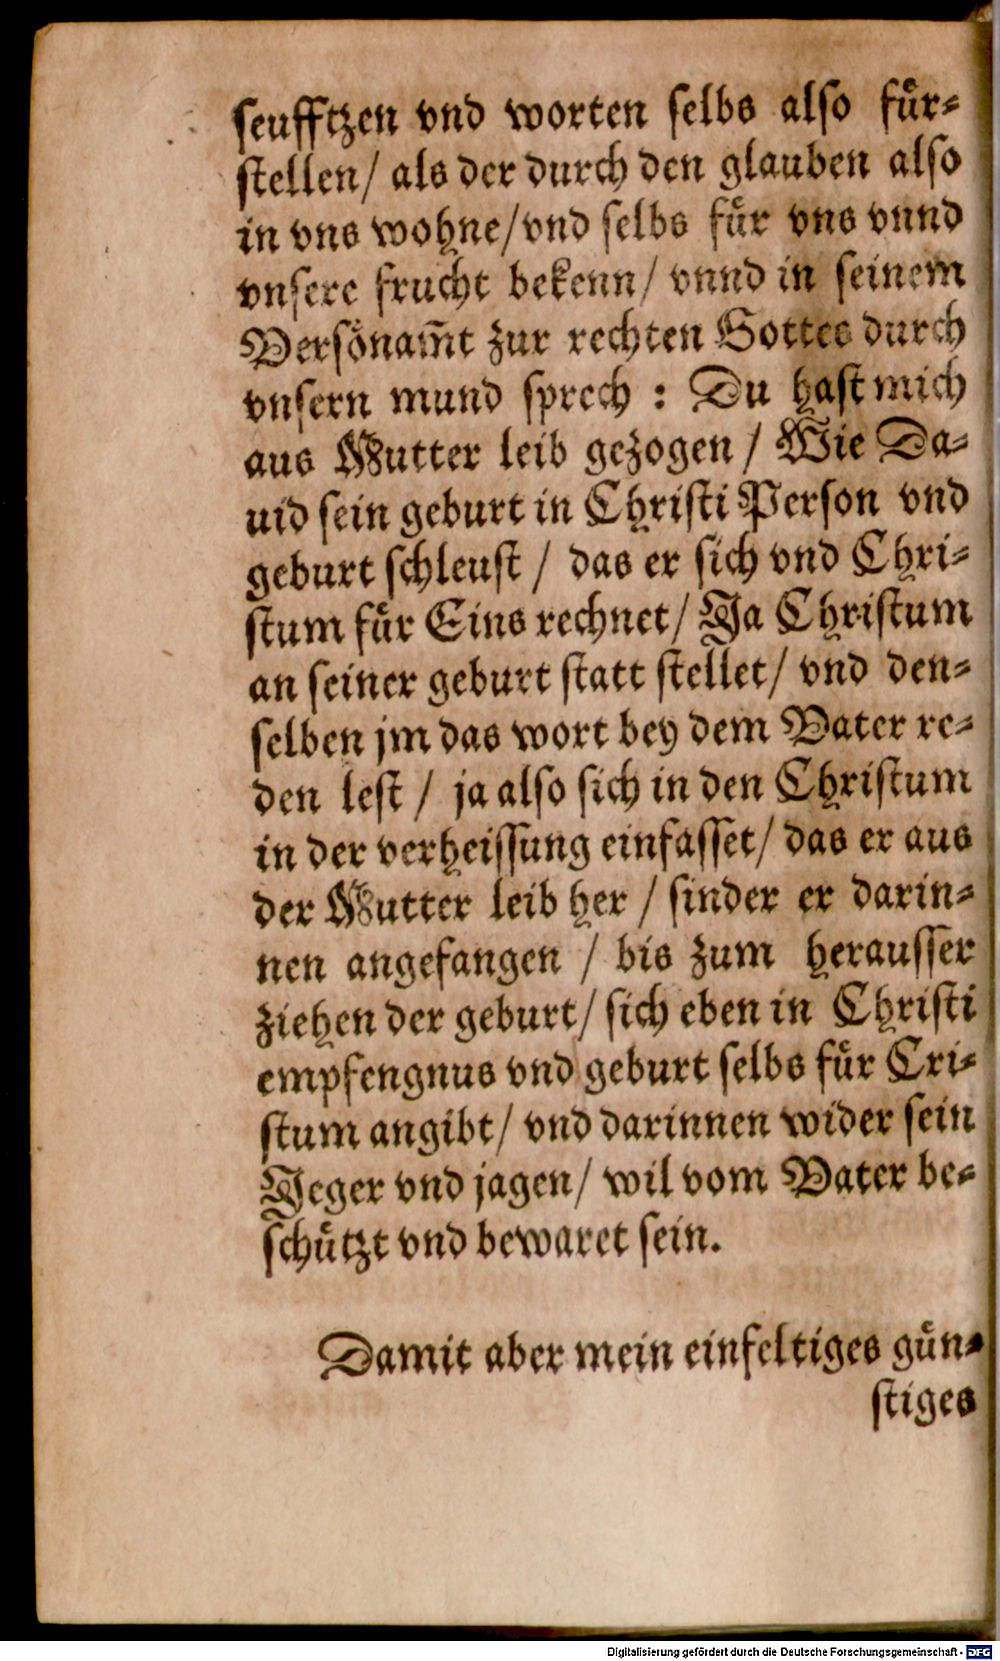 seufftzen vnd worten selbs also fuͤr⸗
stellen/ als der durch den glauben also
in vns wohne/vnd selbs fuͤr vns vnnd
vnsere frucht bekenn/ vnnd in seinem
Persoͤnam̃t zur rechten Gottes durch
vnsern mund sprech : Du hast mich
aus Mutter leib gezogen / Wie Da⸗
uid sein geburt in Christi Person vnd
geburt schleust / das er sich vnd Chri⸗
stum fuͤr Eins rechnet/ Ja Christum
an seiner geburt statt stellet/ vnd den⸗
selben jm das wort bey dem Vater re⸗
den lest / ja also sich in den Christum
in der verheissung einfasset/ das er aus
der Mutter leib her / sinder er darin⸗
nen angefangen / bis zum herausser
ziehen der geburt/ sich eben in Christi
empfengnus vnd geburt selbs fuͤr Cri⸗
stum angibt/ vnd darinnen wider sein
Jeger vnd jagen/ wil vom Vater be⸗
schuͤtzt vnd bewaret sein.
Damit aber mein einfeltiges guͤn⸗
stiges
Digitalisierung gefördert durch die Deutsche Forschungsgemeinschaft - DFG